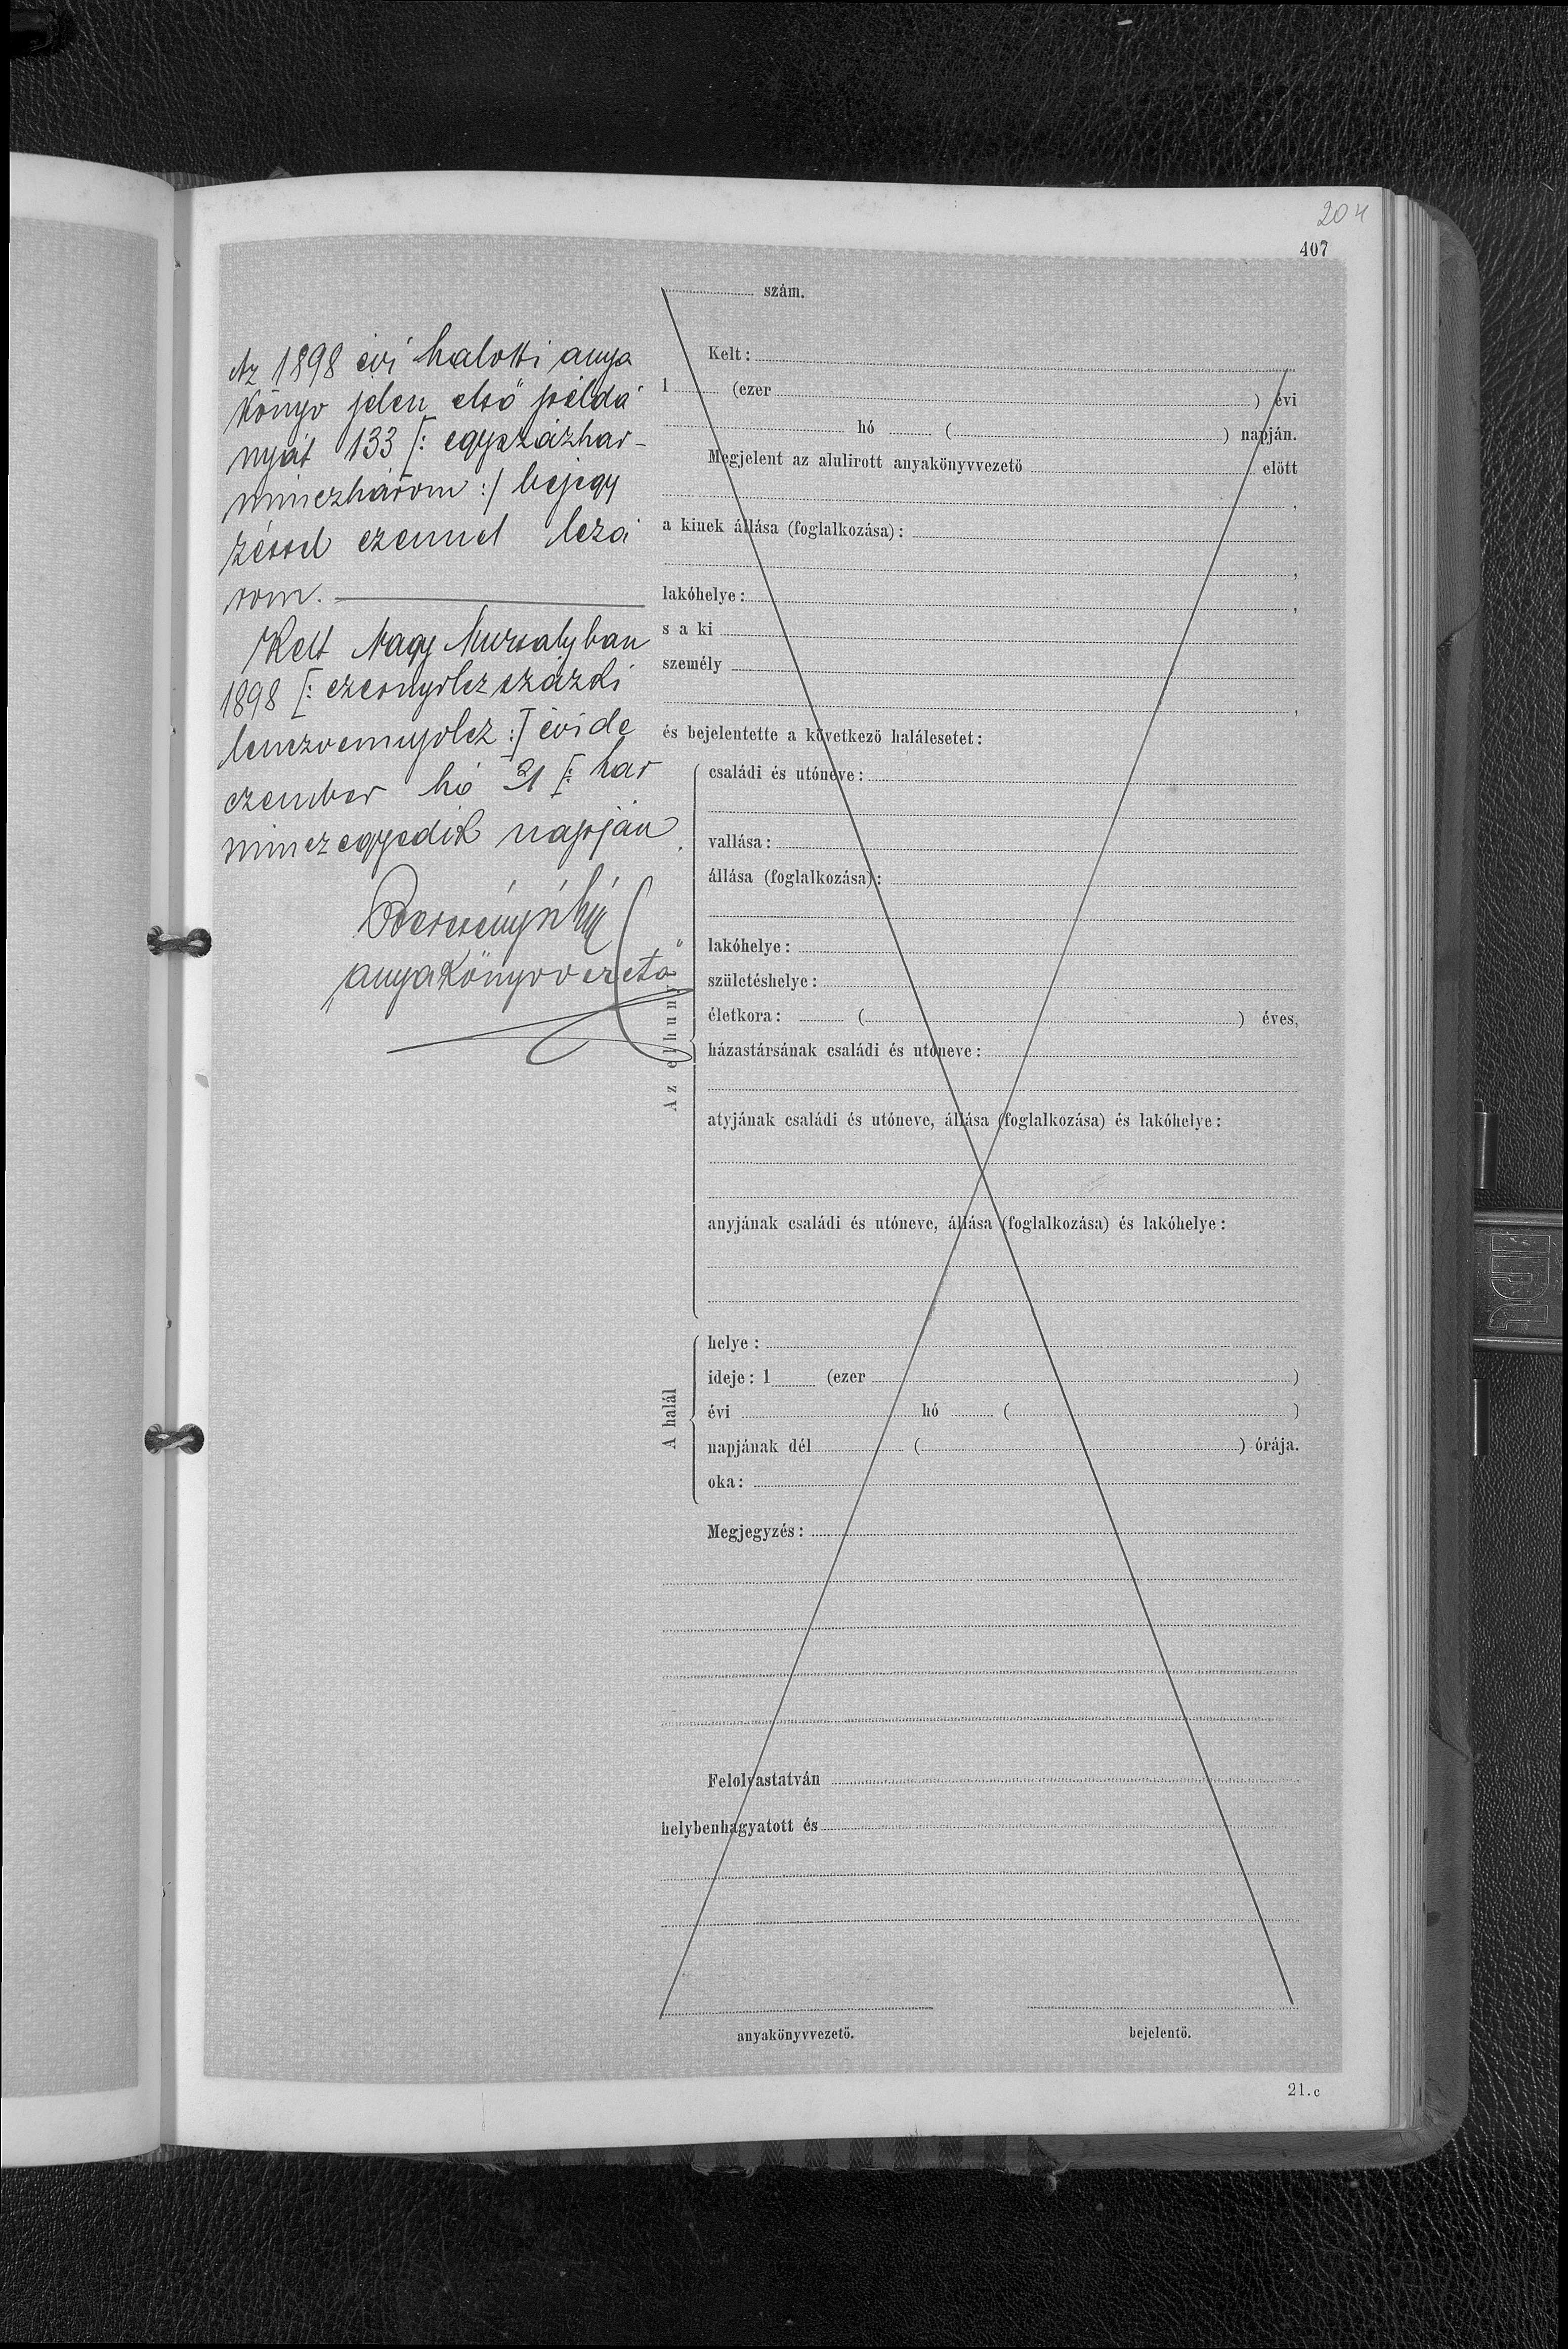 204
407
Az 1898 évi halotti anya
könyv jelen első példá
nyát 133 [: egyszázhar-
minczhárom :/ bejegy
zéssel ezennel lezá
rom.
Kelt Nagy Muzsalyban
1898 [: ezernyolczszázki
lenczvennyolcz :] évi de
czember hó 31 [: har
minczegyedik napján
anyakönyvvezető
szám.
Kelt:
1 (ezer ) évi
hó ( ) napján.
Megjelent az alulirott anyakönyvvezető előtt
,
a kinek állása (foglalkozása):
,
lakóhelye: ,
s a ki
személy
,
és bejelentette a következő halálesetet:
Az elhunyt
családi és utóneve:
vallása:
állása (foglalkozása):
lakóhelye:
születéshelye:
életkora: ( ) éves,
házastársának családi és utóneve:
atyjának családi és utóneve, állása (foglalkozása) és lakóhelye:
anyjának családi és utóneve, állása (foglalkozása) és lakóhelye:
A halál
helye:
ideje: 1 (ezer )
évi hó ( )
napjának dél ( ) órája.
oka:
Megjegyzés:
Felolvastatván
helybenhagyatott és
anyakönyvvezető. bejelentő.
21.c